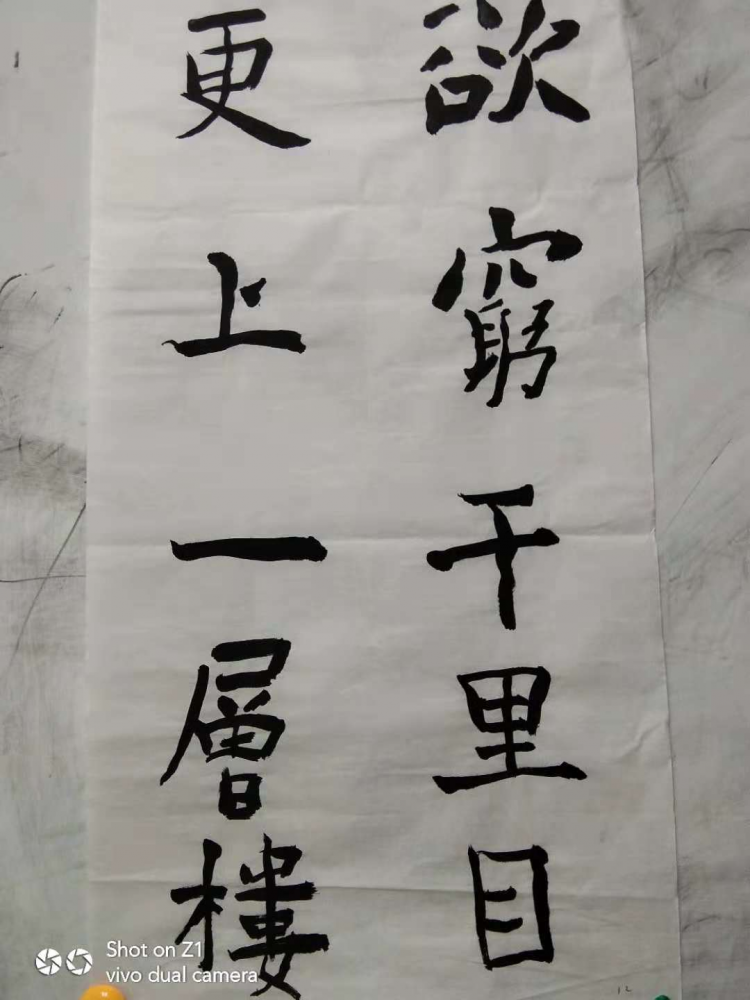 欲窮千里目
更上一層樓
Shot on Z1
vivo dual camera